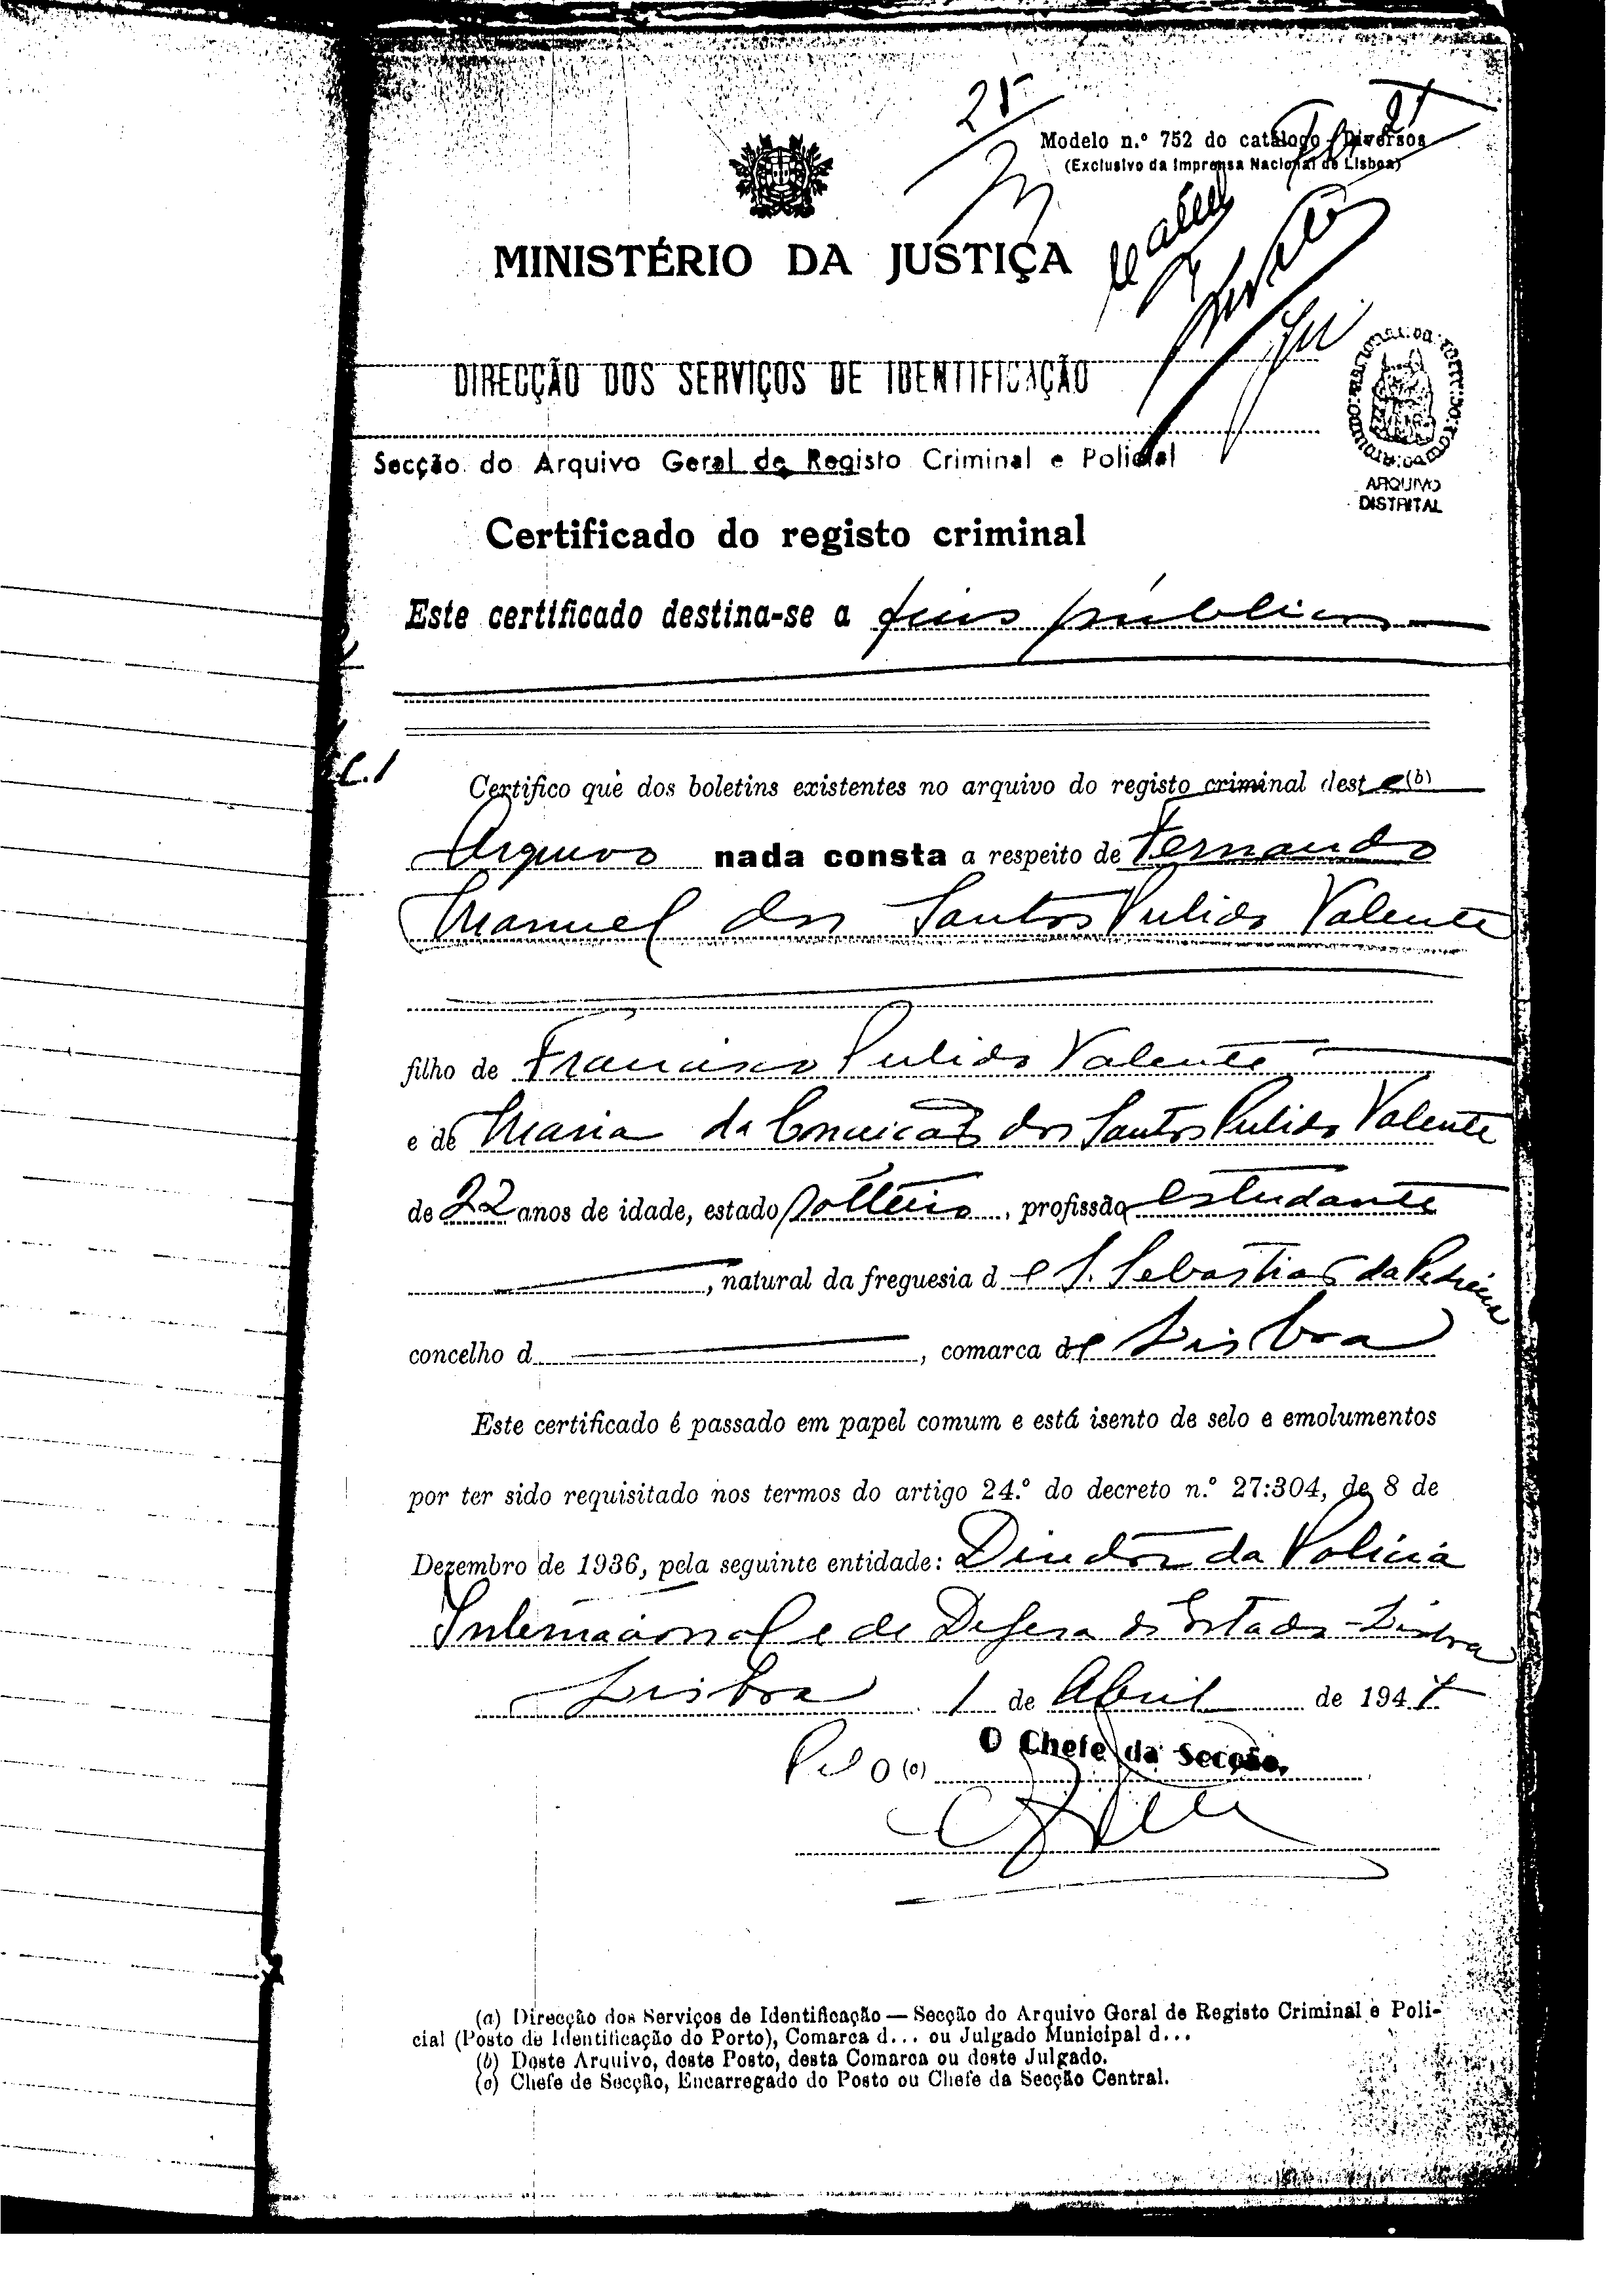 25
Modelo n.º 752 do catálogo - Diversos
(Exclusivo da Imprensa Nacional de Lisboa)
MINISTÉRIO DA JUSTIÇA
DIRECÇÃO DOS SERVIÇOS DE IDENTIFICAÇÃO
Secção do Arquivo Geral de Registo Criminal e Policial
ARQUIVO
DISTRITAL
Certificado do registo criminal
Este certificado destina-se a fins públicos
C.1
Certifico que dos boletins existentes no arquivo do registo criminal deste (b)
Arquivo nada consta a respeito de Fernando
Manuel dos Santos Pulido Valente
filho de Francisco Pulido Valente
e de Maria da Conceição dos Santos Pulido Valente
de 22 anos de idade, estado solteiro, profissão estudante
, natural da freguesia de S. Sebastião da Pedreira
concelho d , comarca de Lisboa
Este certificado é passado em papel comum e está isento de selo e emolumentos
por ter sido requisitado nos termos do artigo 24.º do decreto n.º 27:304, de 8 de
Dezembro de 1936, pela seguinte entidade: Director da Policia
Internacional e de Defesa do Estado - Lisboa
Lisboa 1 de Abril de 194
O Chefe da Secção,
Pel O (c)
(a) Direcção dos Serviços de Identificação — Secção do Arquivo Geral de Registo Criminal e Poli-
cial (Posto de Identificação do Porto), Comarca d... ou Julgado Municipal d...
(b) Deste Arquivo, deste Posto, desta Comarca ou deste Julgado.
(c) Chefe de Secção, Encarregado do Posto ou Chefe da Secção Central.